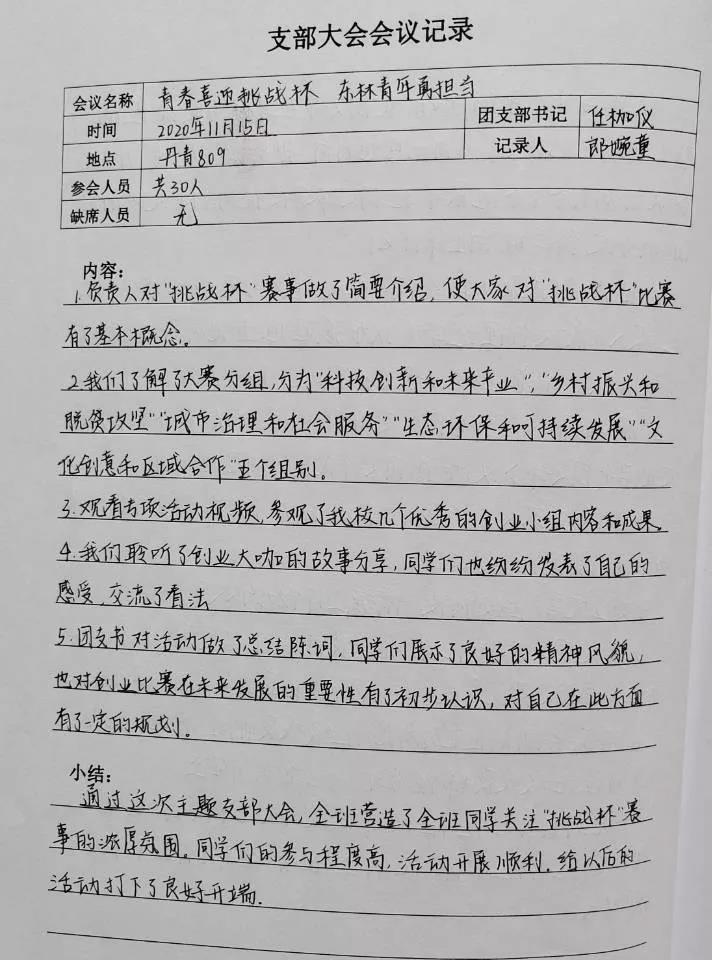 支部大会会议记录
会议名称 青春喜迎挑战杯 东林青年勇担当
时间 2020年11月15日 团支部书记 任枷仪
地点 丹青809 记录人 郎婉童
参会人员 共30人
缺席人员 无
内容：
1.负责人对"挑战杯"赛事做了简要介绍，使大家对"挑战杯"比赛
有了基本概念。
2.我们了解了大赛分组，分为"科技创新和未来产业"，"乡村振兴和
脱贫攻坚""城市治理和社会服务""生态环保和可持续发展""文
化创意和区域合作"五个组别。
3.观看专项活动视频，参观了我校几个优秀的创业小组内容和成果。
4.我们聆听了创业大咖的故事分享，同学们也纷纷发表了自己的
感受，交流了看法
5.团支书对活动做了总结陈词，同学们展示了良好的精神风貌，
也对创业比赛在未来发展的重要性有了初步认识，对自己在此方面
有了一定的规划。
小结：
通过这次主题支部大会，全班营造了全班同学关注"挑战杯"赛
事的浓厚氛围。同学们的参与程度高，活动开展顺利。给以后的
活动打下了良好开端.